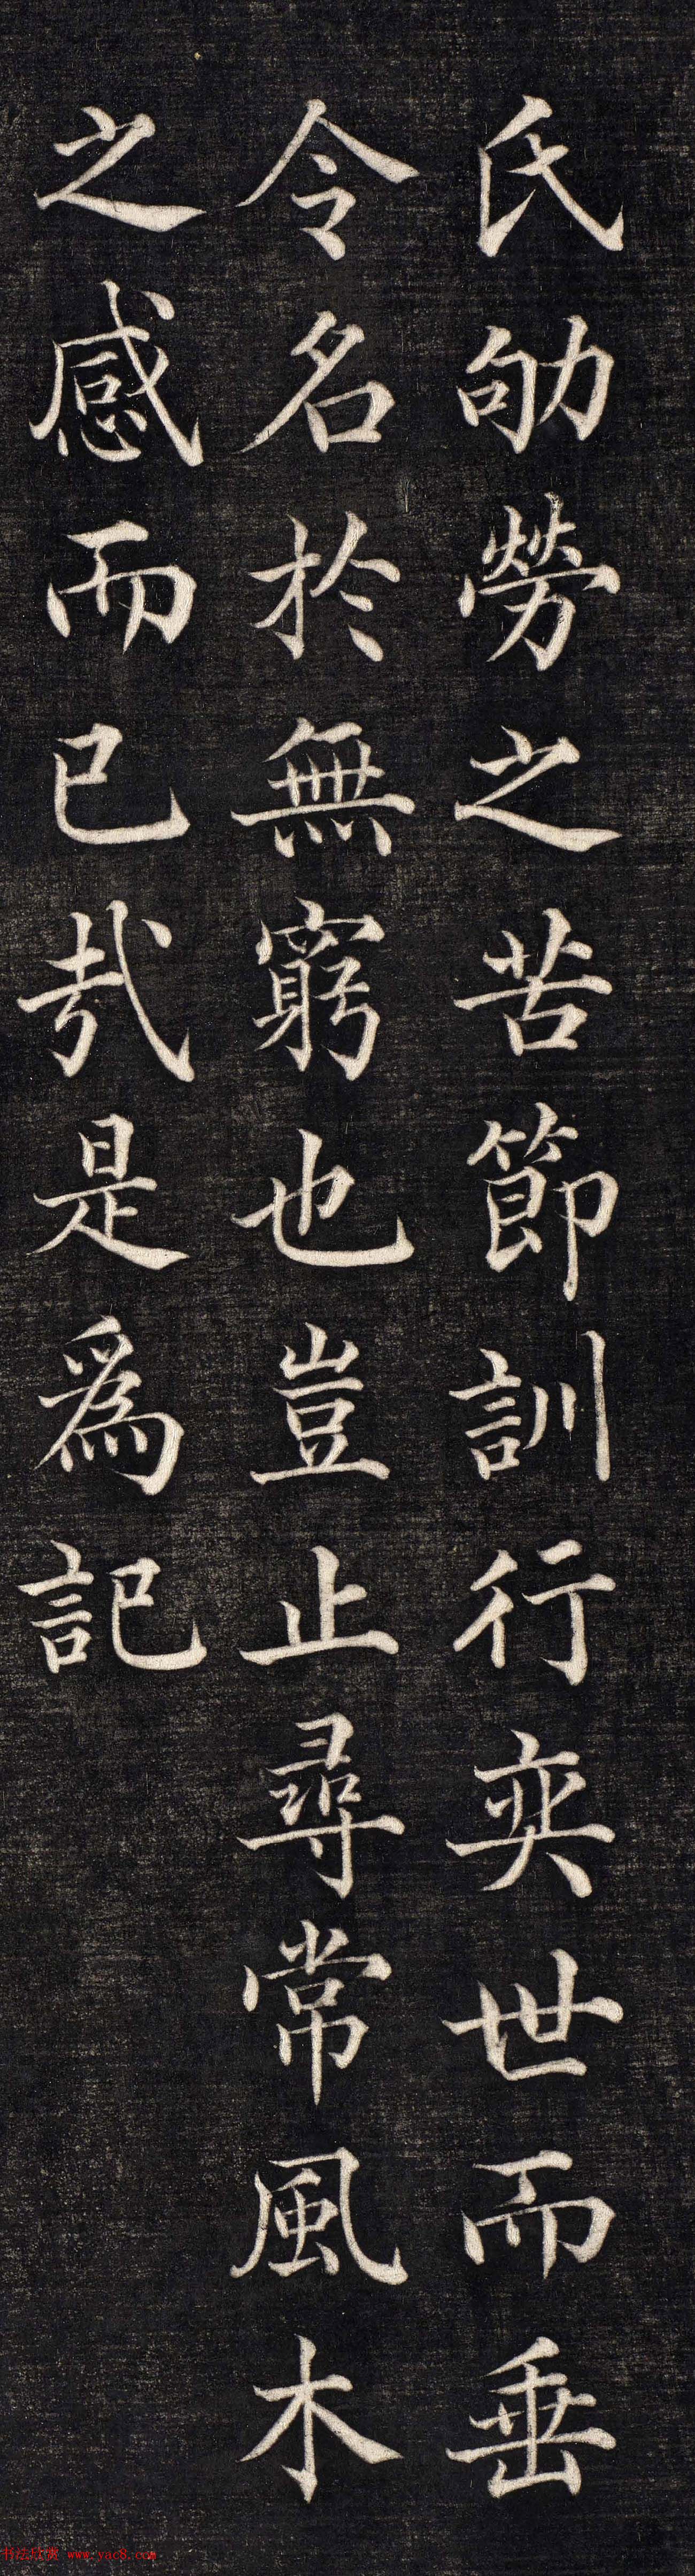 氏劬勞之苦節訓行奕世而垂
令名於無窮也豈止尋常風木
之感而已哉是爲記
书法欣赏 www.yac8.com